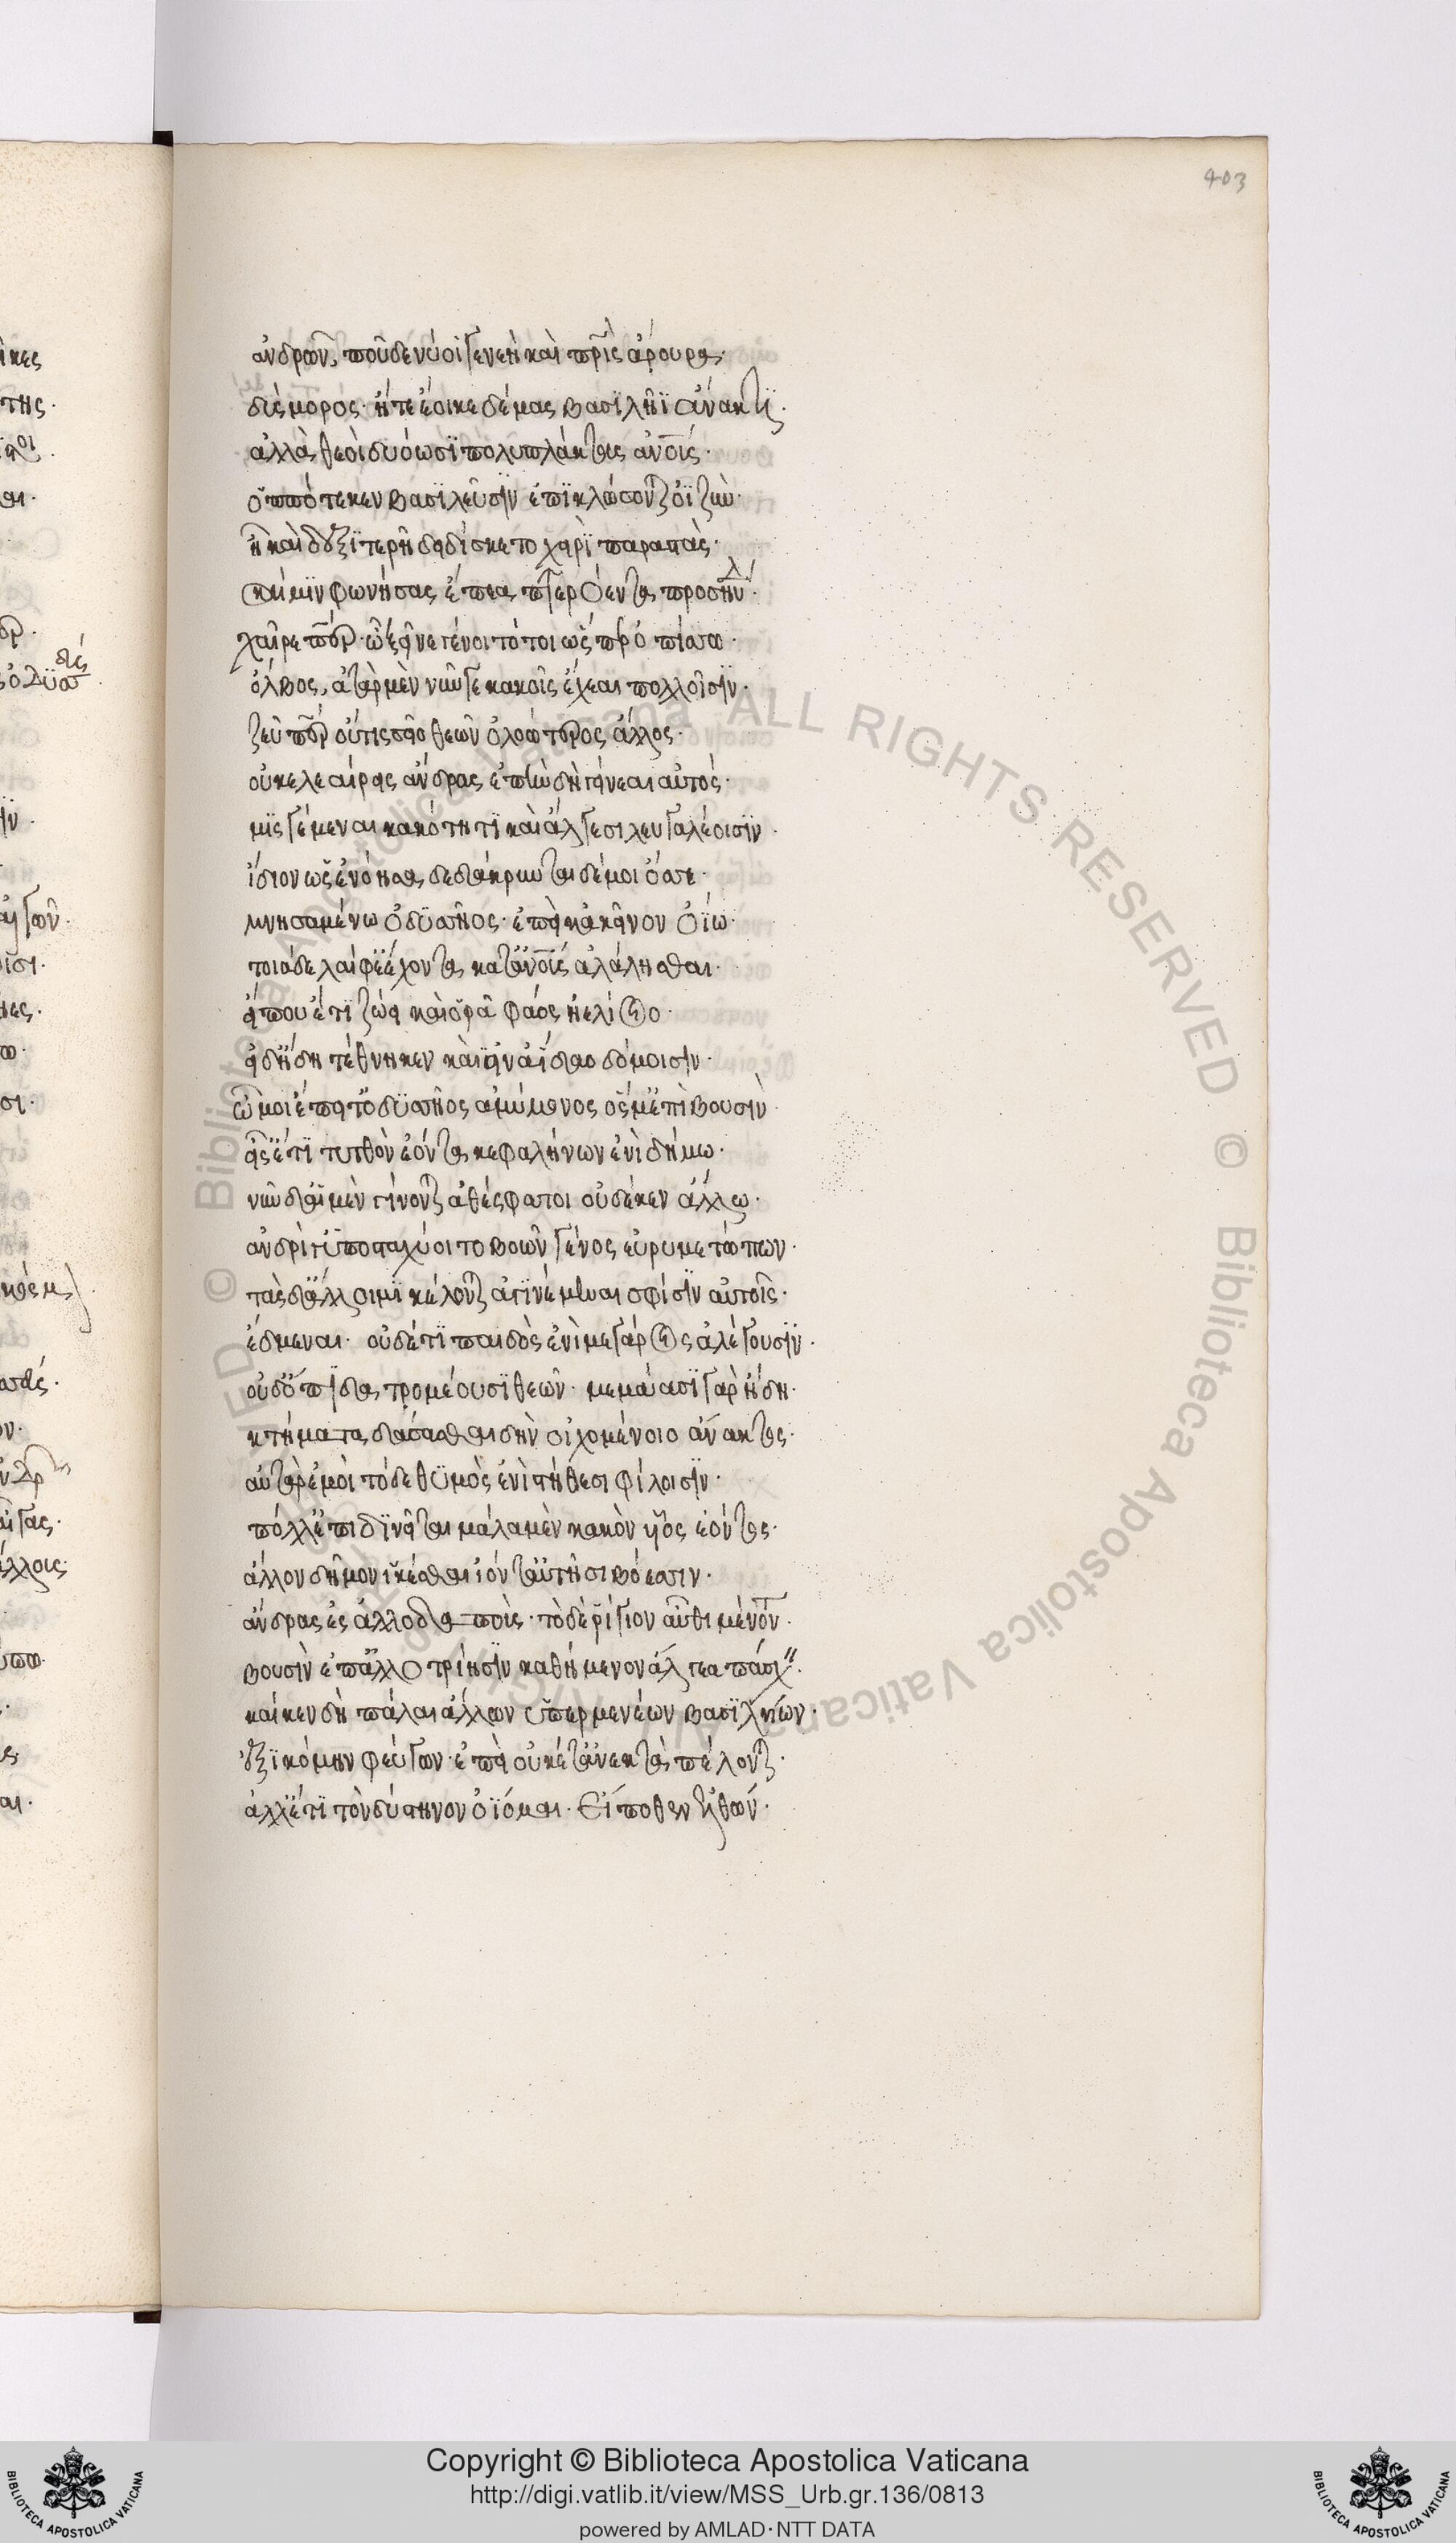 403
ἀνδρῶν, ποῦ δέ νύ οἱ γενεὴ καὶ πατρὶς ἄρουρα·
δύσμορος· ἦ τε ἔοικε δέμας βασιλῆϊ ἄνακτι·
ἀλλὰ θεοὶ δυόωσι πολυπλάγκτους ἀνους·
ὁππότε κεν βασιλεῦσιν ἐπικλώσονται ὀϊζὺν·
ἦ καὶ δεξιτερῇ δειδίσκετο χειρὶ παραστὰς·
καί μιν φωνήσας ἔπεα πτερόεντα προσηύδα·
χαῖρε πάτερ ὦ ξεῖνε γένοιτό τοι ὥς περ ὀπίσσω·
ὄλβος, ἀτὰρ μὲν νῦν γε κακοῖς ἔχεαι πολλοῖσιν·
ζεῦ πάτερ οὔτις σεῖο θεῶν ὀλοώτερος ἄλλος·
οὐκ ἐλεαίρεις ἄνδρας ἐπὴν δὴ γείνεαι αὐτός·
μισγέμεναι κακότητι καὶ ἄλγεσι λευγαλέοισιν·
ἴδιον ὡς ἐνόησα, δεδάκρυνται δέ μοι ὄσσε·
μνησαμένω ὀδυσσῆος· ἐπεὶ καὶ κεῖνον ὀΐω·
τοιάδε λαίφε ἔχοντα κατ ἀνους ἀλάλησθαι·
εἴ που ἔτι ζώει καὶ ὁρᾶ φάος ἠελίοιο·
εἰ δ ἤδη τέθνηκεν καὶ εἰν ἀΐδαο δόμοισιν·
ὤ μοι ἔπειτ ὀδυσσῆος ἀμύμονος ὅς μ ἐπὶ βουσὶν
εἷς ἔτι τυτθὸν ἐόντα κεφαλήνων ἐνὶ δήμω·
νῦν δ αἱ μὲν γίνονται ἀθέσφατοι οὐδέ κεν ἄλλω·
ἀνδρί γ ὑποσταχύοιτο βοῶν γένος εὐρυμετώπων·
τὰς δ ἄλλοι με κέλονται ἀγινέμεναι σφίσιν αὐτοῖς·
ἔδμεναι· οὐδέ τι παιδὸς ἐνὶ μεγάροις ἀλέγουσιν·
οὐδ ὄπιδα τρομέουσι θεῶν· μεμάασι γὰρ ἤδη·
κτήματα δάσασθαι δὴν οἰχομένοιο ἄνακτος·
αὐτὰρ ἐμοὶ τόδε θυμὸς ἐνὶ στήθεσι φίλοισιν·
πόλλ ἐπιδινεῖται μάλα μὲν κακὸν υἷος ἐόντος·
ἄλλον δῆμον ἱκέσθαι ἰόντ αὐτῇσι βόεσσιν·
ἄνδρας ἐς ἀλλοδαπούς· τὸ δὲ ῥίγιον αὖθι μένοντα·
βουσὶν ἐπ ἀλλοτρίῃσιν καθήμενον ἄλγεα πάσχειν·
καί κεν δὴ πάλαι ἄλλων ὑπερμενέων βασιλήων·
ἐξικόμην φεύγων· ἐπεὶ οὐκέτ ἀνεκτὰ πέλονται·
ἀλλ ἔτι τὸν δύστηνον ὀΐομαι· Εἴ ποθεν ἐλθών·
Copyright © Biblioteca Apostolica Vaticana
http://digi.vatlib.it/view/MSS_Urb.gr.136/0813
powered by AMLAD·NTT DATA